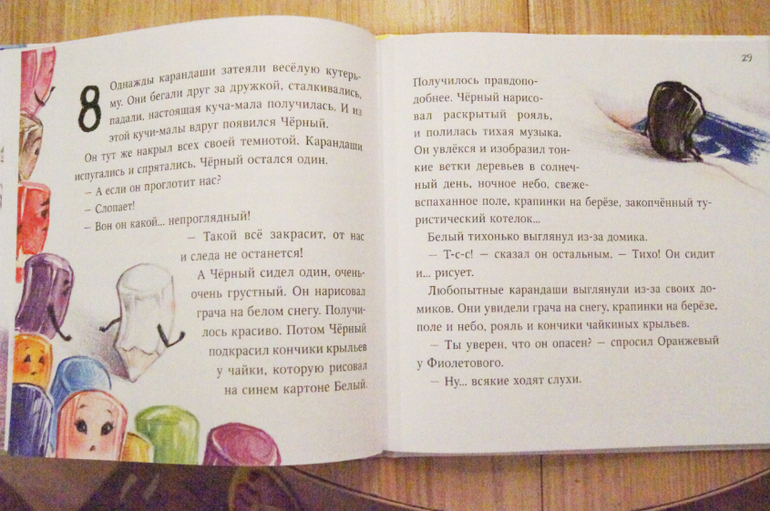 8
Однажды карандаши затеяли весёлую кутерь-
му. Они бегали друг за дружкой, сталкивались,
падали, настоящая куча-мала получилась. И из
этой кучи-малы вдруг появился Чёрный.
Он тут же накрыл всех своей темнотой. Карандаши
испугались и спрятались. Чёрный остался один.
– А если он проглотит нас?
– Слопает!
– Вон он какой... непроглядный!
– Такой всё закрасит, от нас
и следа не останется!
А Чёрный сидел один, очень-
очень грустный. Он нарисовал
грача на белом снегу. Получи-
лось красиво. Потом Чёрный
подкрасил кончики крыльев
у чайки, которую рисовал
на синем картоне Белый.
29
Получилось правдопо-
добнее. Чёрный нарисо-
вал раскрытый рояль,
и полилась тихая музыка.
Он увлёкся и изобразил тон-
кие ветки деревьев в солнеч-
ный день, ночное небо, свеже-
вспаханное поле, крапинки на берёзе, закопчённый ту-
ристический котелок...
Белый тихонько выглянул из-за домика.
– Т-с-с! – сказал он остальным. – Тихо! Он сидит
и... рисует.
Любопытные карандаши выглянули из-за своих до-
миков. Они увидели грача на снегу, крапинки на берёзе,
поле и небо, рояль и кончики чайкиных крыльев.
– Ты уверен, что он опасен? – спросил Оранжевый
у Фиолетового.
– Ну... всякие ходят слухи.